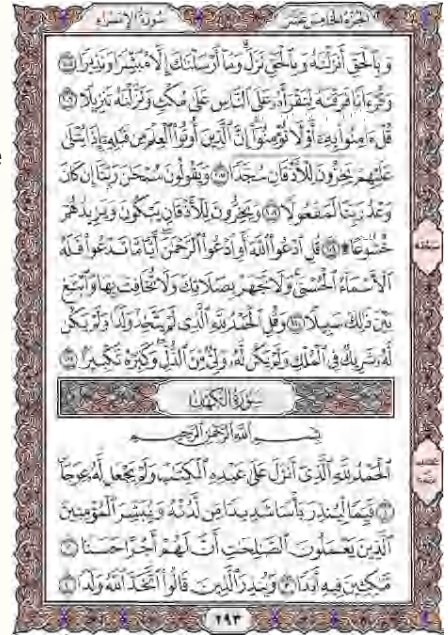 الجزء الخامس عشر سورة الإسراء
وَبِٱلْحَقِّ أَنزَلْنَٰهُ وَبِٱلْحَقِّ نَزَلَ وَمَآ أَرْسَلْنَٰكَ إِلَّا مُبَشِّرًا وَنَذِيرًا ١٠٥
وَقُرْءَانًا فَرَقْنَٰهُ لِتَقْرَأَهُۥ عَلَى ٱلنَّاسِ عَلَىٰ مُكْثٍ وَنَزَّلْنَٰهُ تَنزِيلًا ١٠٦
قُلْ ءَامِنُوا۟ بِهِۦٓ أَوْ لَا تُؤْمِنُوٓا۟ إِنَّ ٱلَّذِينَ أُوتُوا۟ ٱلْعِلْمَ مِن قَبْلِهِۦٓ إِذَا يُتْلَىٰ
عَلَيْهِمْ يَخِرُّونَ لِلْأَذْقَانِ سُجَّدًا ١٠٧ وَيَقُولُونَ سُبْحَٰنَ رَبِّنَآ إِن كَانَ
وَعْدُ رَبِّنَا لَمَفْعُولًا ١٠٨ وَيَخِرُّونَ لِلْأَذْقَانِ يَبْكُونَ وَيَزِيدُهُمْ
خُشُوعًا ۩ ١٠٩ قُلِ ٱدْعُوا۟ ٱللَّهَ أَوِ ٱدْعُوا۟ ٱلرَّحْمَٰنَ أَيًّا مَّا تَدْعُوا۟ فَلَهُ
ٱلْأَسْمَآءُ ٱلْحُسْنَىٰ وَلَا تَجْهَرْ بِصَلَاتِكَ وَلَا تُخَافِتْ بِهَا وَٱبْتَغِ
بَيْنَ ذَٰلِكَ سَبِيلًا ١١٠ وَقُلِ ٱلْحَمْدُ لِلَّهِ ٱلَّذِى لَمْ يَتَّخِذْ وَلَدًا وَلَمْ يَكُن
لَّهُۥ شَرِيكٌ فِى ٱلْمُلْكِ وَلَمْ يَكُن لَّهُۥ وَلِىٌّ مِّنَ ٱلذُّلِّ وَكَبِّرْهُ تَكْبِيرًۢا ١١١
سورة الكهف
بِسْمِ ٱللَّهِ ٱلرَّحْمَٰنِ ٱلرَّحِيمِ
ٱلْحَمْدُ لِلَّهِ ٱلَّذِىٓ أَنزَلَ عَلَىٰ عَبْدِهِ ٱلْكِتَٰبَ وَلَمْ يَجْعَل لَّهُۥ عِوَجَا
١ قَيِّمًا لِّيُنذِرَ بَأْسًا شَدِيدًا مِّن لَّدُنْهُ وَيُبَشِّرَ ٱلْمُؤْمِنِينَ
ٱلَّذِينَ يَعْمَلُونَ ٱلصَّٰلِحَٰتِ أَنَّ لَهُمْ أَجْرًا حَسَنًا ٢
مَّٰكِثِينَ فِيهِ أَبَدًا ٣ وَيُنذِرَ ٱلَّذِينَ قَالُوا۟ ٱتَّخَذَ ٱللَّهُ وَلَدًا ٤
٢٩٣